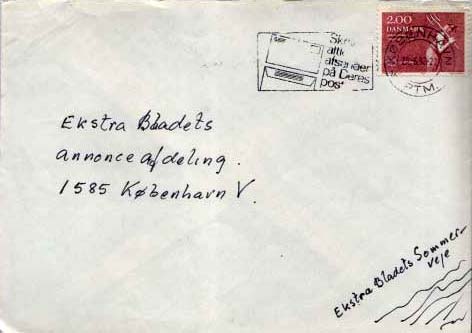 Skriv
altid
afsender
på Deres
post
2.00
DANMARK
KØBENHAVN
PTM.
Ekstra Bladets
annonceafdeling.
1585 København V.
Ekstra Bladets Sommer-
veje